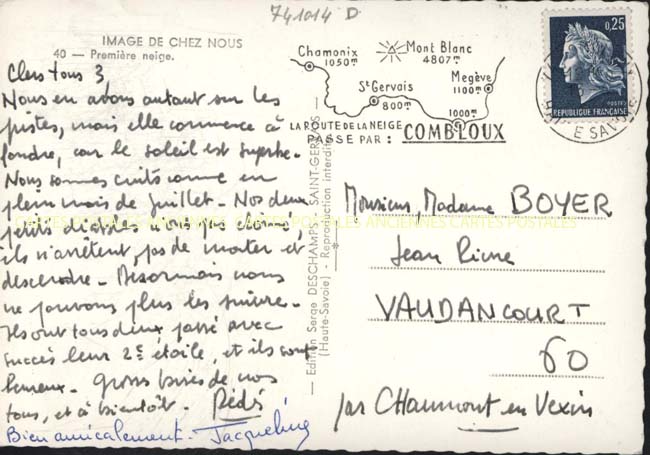 741014 D
IMAGE DE CHEZ NOUS
40 — Première neige.
Chers tous 3
Nous en avons autant sur les
pistes, mais elle commence à
fondre, car le soleil est superbe.
Nous sommes cuits comme en
plein mois de Juillet. Nos deux
petits diables nous
ils n'arrêtent pas de monter et
descendre. Desormais nous
ne pouvons plus les suivre.
Ils ont tous deux passé avec
succès leur 2e étoile, et ils sont
heureux. Grosses bises de nous
tous, et à bientôt. Dédé
Bien amicalement. Jacqueline
— Edition Serge DESCHAMPS - SAINT-GERVAIS —
(Haute-Savoie) - Reproduction interdite
Chamonix
1050m
Mont Blanc
4807m
St Gervais
800m
Megève
1100m
1000m
LA ROUTE DE LA NEIGE
PASSE PAR : COMBLOUX
0,25
POSTES
REPUBLIQUE FRANÇAISE
E SAVOIE
Monsieur, Madame BOYER
Jean Pierre
VAUDANCOURT
60
par CHaumont en Vexin
CARTES POSTALES ANCIENNES CARTES POSTALES ANCIENNES CARTES POSTALES